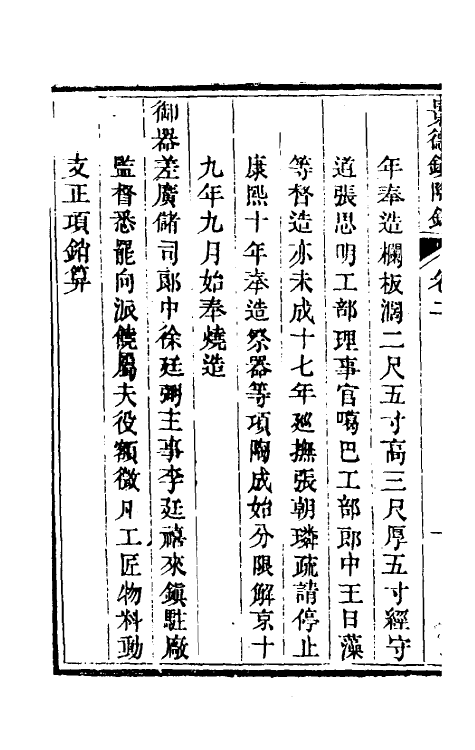 景德鎮陶錄 卷二 一
年奉造欄板濶二尺五寸高三尺厚五寸經守
道張思明工部理事官噶巴工部郎中王日藻
等督造亦未成十七年廵撫張朝璘疏請停止
康熙十年奉造祭器等項陶成始分限解京十
九年九月始奉燒造
御器差廣儲司郎中徐廷弼主事李廷禧來鎭駐廠
監督悉罷向派饒屬夫役額徵凡工匠物料動
支正項銷算